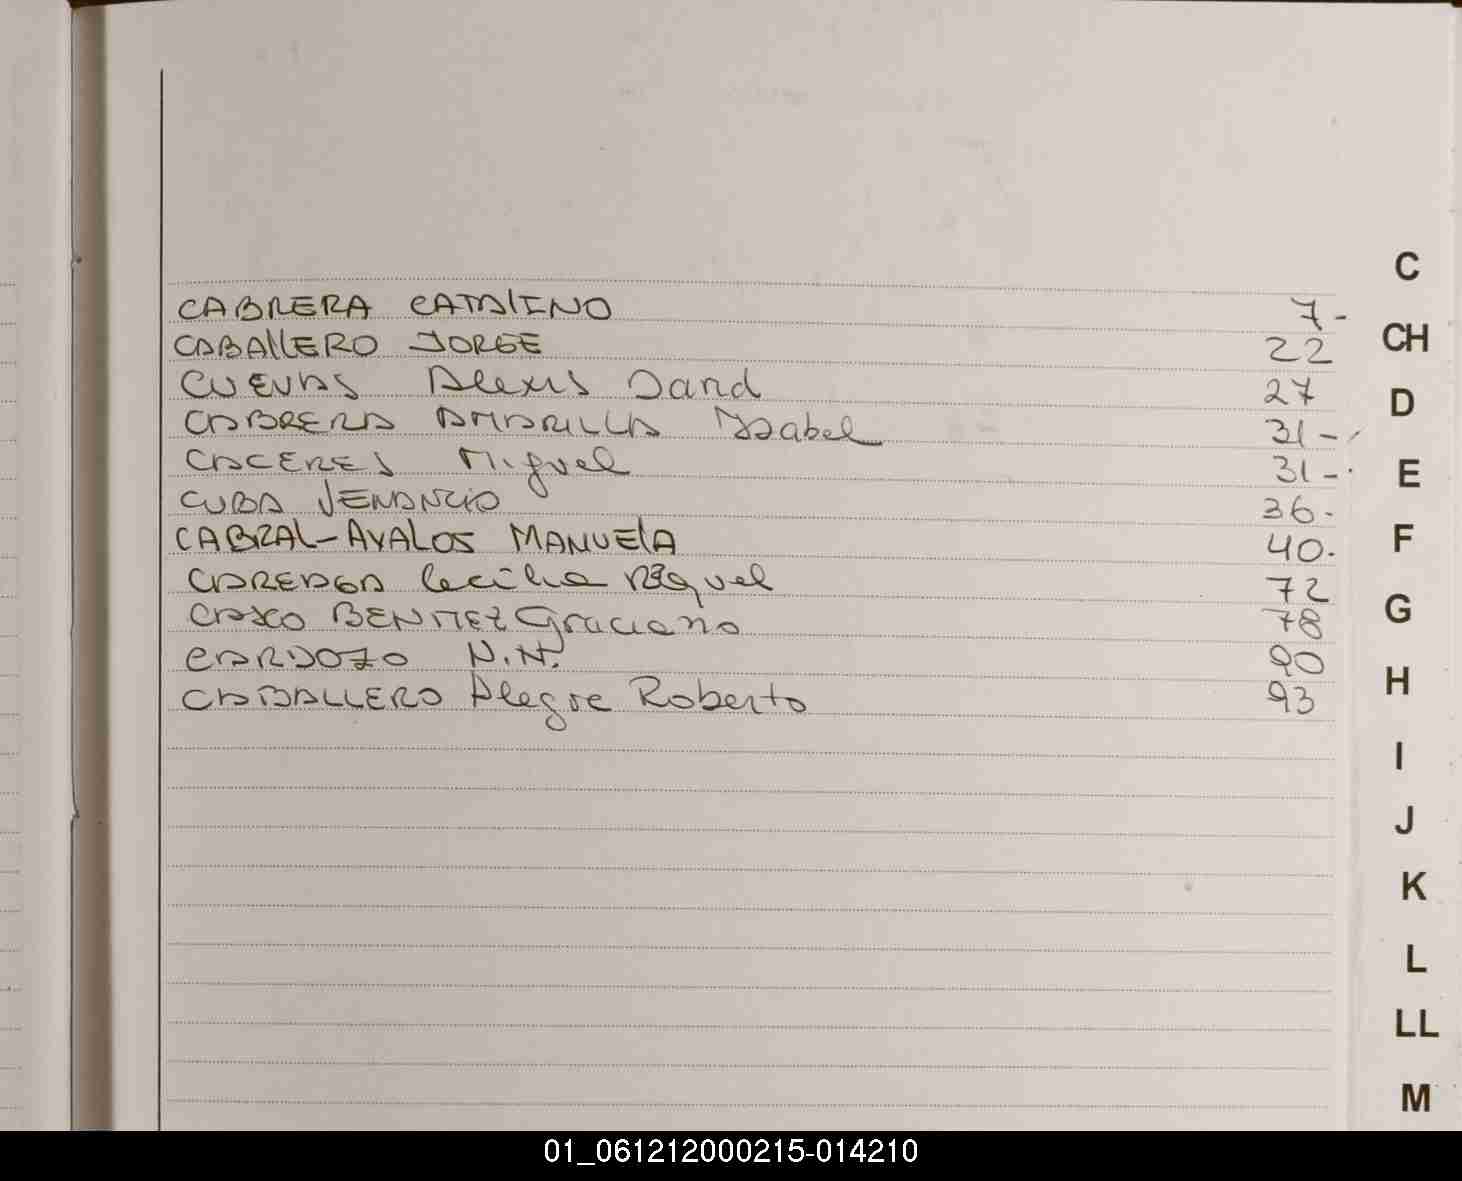 C
CABRERA CATALINO 7-
CABALLERO JORGE 22
CH
CUEVAS Alexis David 27
D
CABRERA AMARILLA Ysabel 31-
CACERES Miguel 31-.
E
CUBA VENANCIO 36.
CABRAL-AYALOS MANUElA 40.
F
CAREAGA Cecilia Raquel 72
CASCO BENITEZ Graciano 78
G
CARDOZO N.N. 90
CABALLERO Alegre Roberto 93
H
I
J
K
L
LL
M
01_061212000215-014210